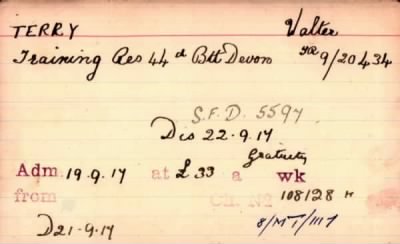 TERRY Walter
Training Res 44th Btt Devon TR9/20434
S.F.D. 5597
Dis 22.9.17
gratuity
Adm. 19.9.17 at £33 a wk
from Ch. No 108128 H
D21-9-17 8/MT/1117